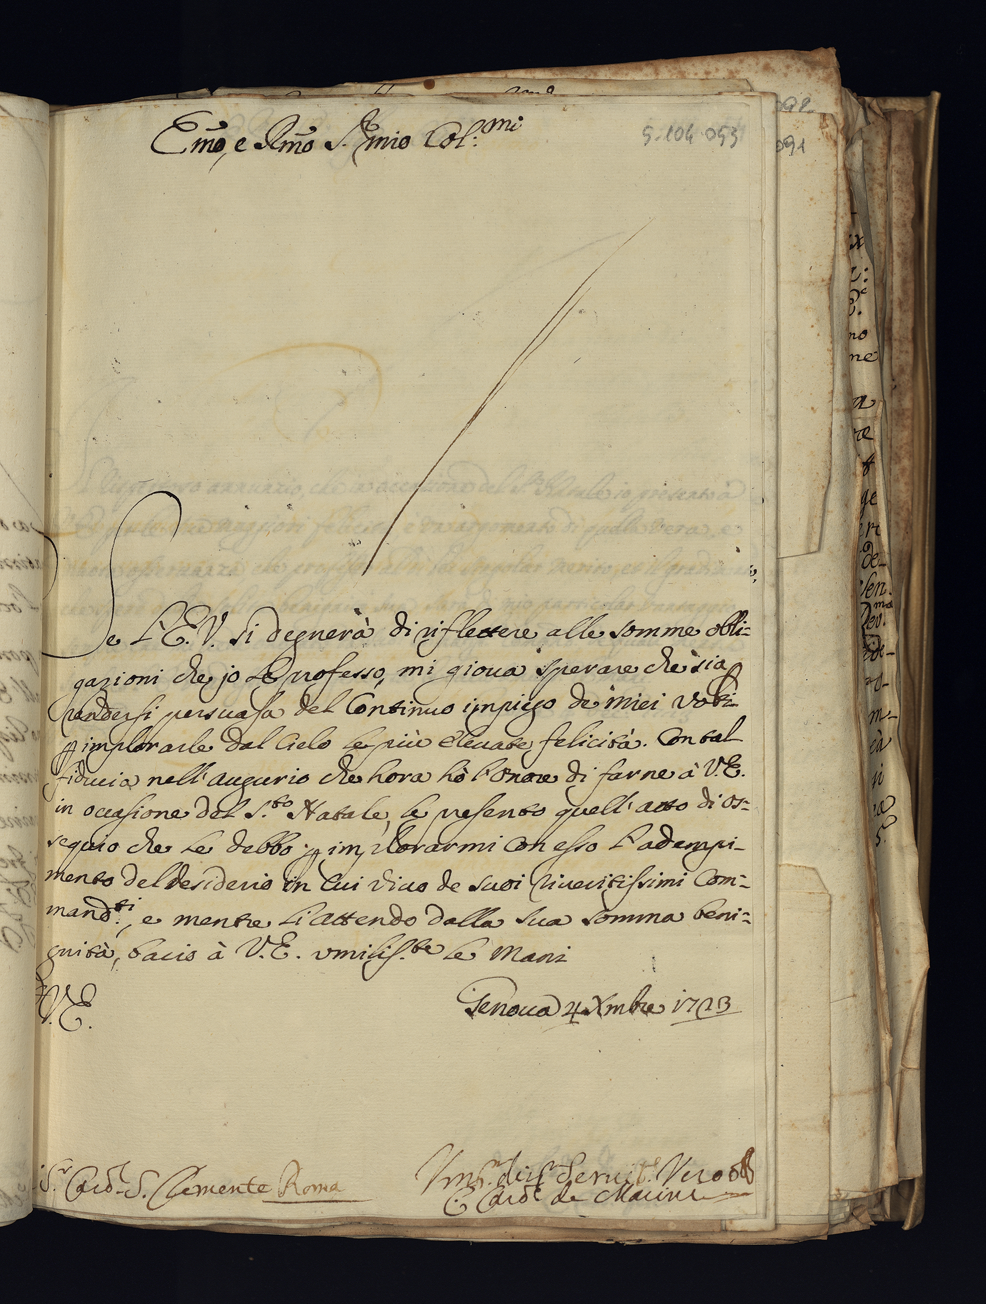 Emo, e Rmo S. mio Col.mi
5.104 093
092
091
Se L'E.V. si degnerà di riflettere alle somme obli-
gazioni che jo Le professo, mi giova sperare che sia
rendersi persuasa del Continuo impiego de miei voti
p implorarle dal Cielo le più elevate felicità. Con tal
fiducia nell'augurio che hora hò l'onore di farne à V.E.
in occasione del S.to Natale, le presento quell'atto di os-
sequio che Le debbo p implorarmi con esso L'adempi-
mento del desiderio in cui vivo de suoi riveritissimi Com-
mand.ti, e mentre Li attendo dalla sua somma beni-
gnità, bacio à V.E. umilis.te le Mani
V.E.
Genova 4 Xmbre 1723
S.r Card. S. Clemente Roma
Servit. Vero
Card. de Marini